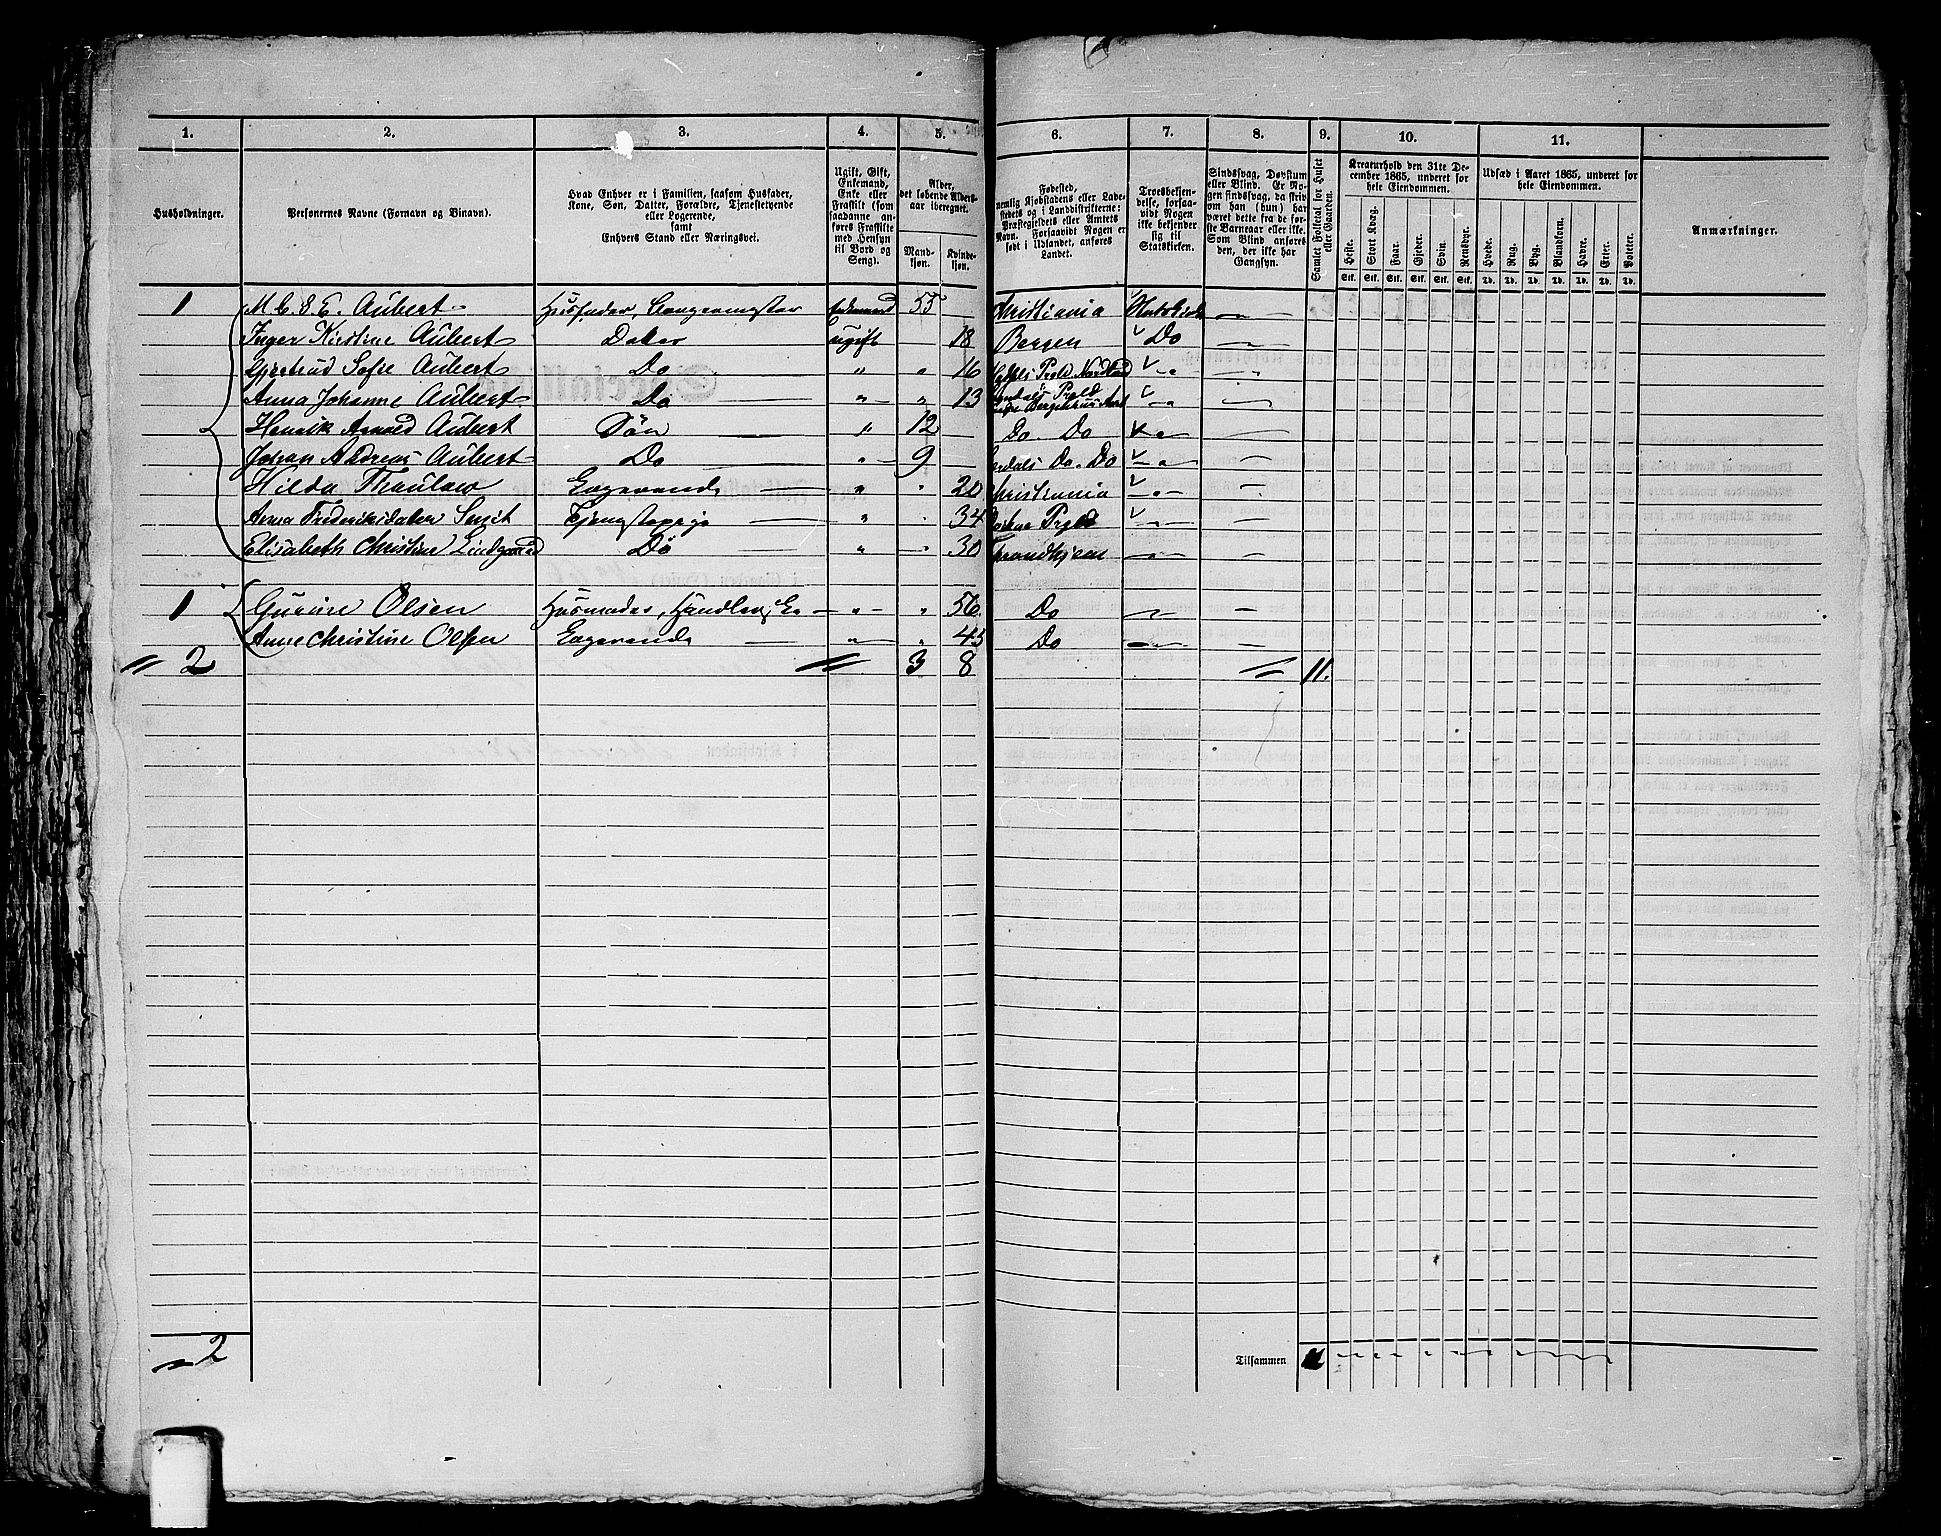 1. 2. 3. 4. 5. 6. 7. 8. 9. 10. 11.
Husholdninger.
Personernes Navne (Fornavn og Binavn).
Hvad Enhver er i Familien, saasom Husfader,
Kone, Søn, Datter, Forældre, Tjenestetyende
eller Logerende,
samt
Enhvers Stand eller Næringsvei.
Ugift, Gift,
Enkemand,
Enke eller
Fraskilt (som
saadanne an-
føres Fraskilte
med Hensyn
til Bord og
Seng).
Alder,
det løbende Alders-
aar iberegnet.
Mand-
kjøn.
Kvinde-
kjøn.
Fødested,
nemlig Kjøbstadens eller Lade-
stedets og i Landdistrikterne:
Præstegjeldets eller Amtets
Navn. Forsaavidt Nogen er
født i Udlandet, anføres
Landet.
Troesbekjen-
delse, forsaa-
vidt Nogen
ikke bekjender
sig til
Statskirken.
Sindssvag, Døvstum
eller Blind. Er No-
gen sindssvag, da skriv
om han (hun) har
været dette fra de før-
ste Barneaar eller ikke.
Som Blind anføres
den, der ikke har
Gangsyn.
Samlet Folketal for Huset
eller Gaarden.
Kreaturhold den 31te De-
cember 1865, underet for
hele Eiendommen.
Heste. Stort Kvæg. Faar. Gjeder. Svin. Rensdyr.
Stk. Stk. Stk. Stk. Stk. Stk.
Udsæd i Aaret 1865, underet for
hele Eiendommen.
Hvede. Rug. Byg. Blandkorn. Havre. Erter. Poteter.
Td. Td. Td. Td. Td. Td. Td.
Anmærkninger.
1 M C S E. Aubert Husfader, 55 Christiania Statskirke
Inger Kirstine Aubert Datter ugift 18 Bergen Do
Gjertrud Sofie Aubert Do " " 16 Prgld Nordland
Anna Johanne Aubert Do " " 13 Prgld Bergenhus Amt
Henrik Aubert Søn " 12 Do. Do
Johan Andreas Aubert Do " 9 Do. Do
Hilda Thaulow Logerende " " 20 Christiania
Anna Frederiksdatter Smit Tjenestepige " " 34 Prgld
Elisabeth Christine Lindgaard Do " " 30 Throndhjem
1 Gurine Olsen Husmoder, " " 56 Do
Anne Christine Olsen Logerende " " 45 Do
2 3 8 11.
2 Tilsammen 11